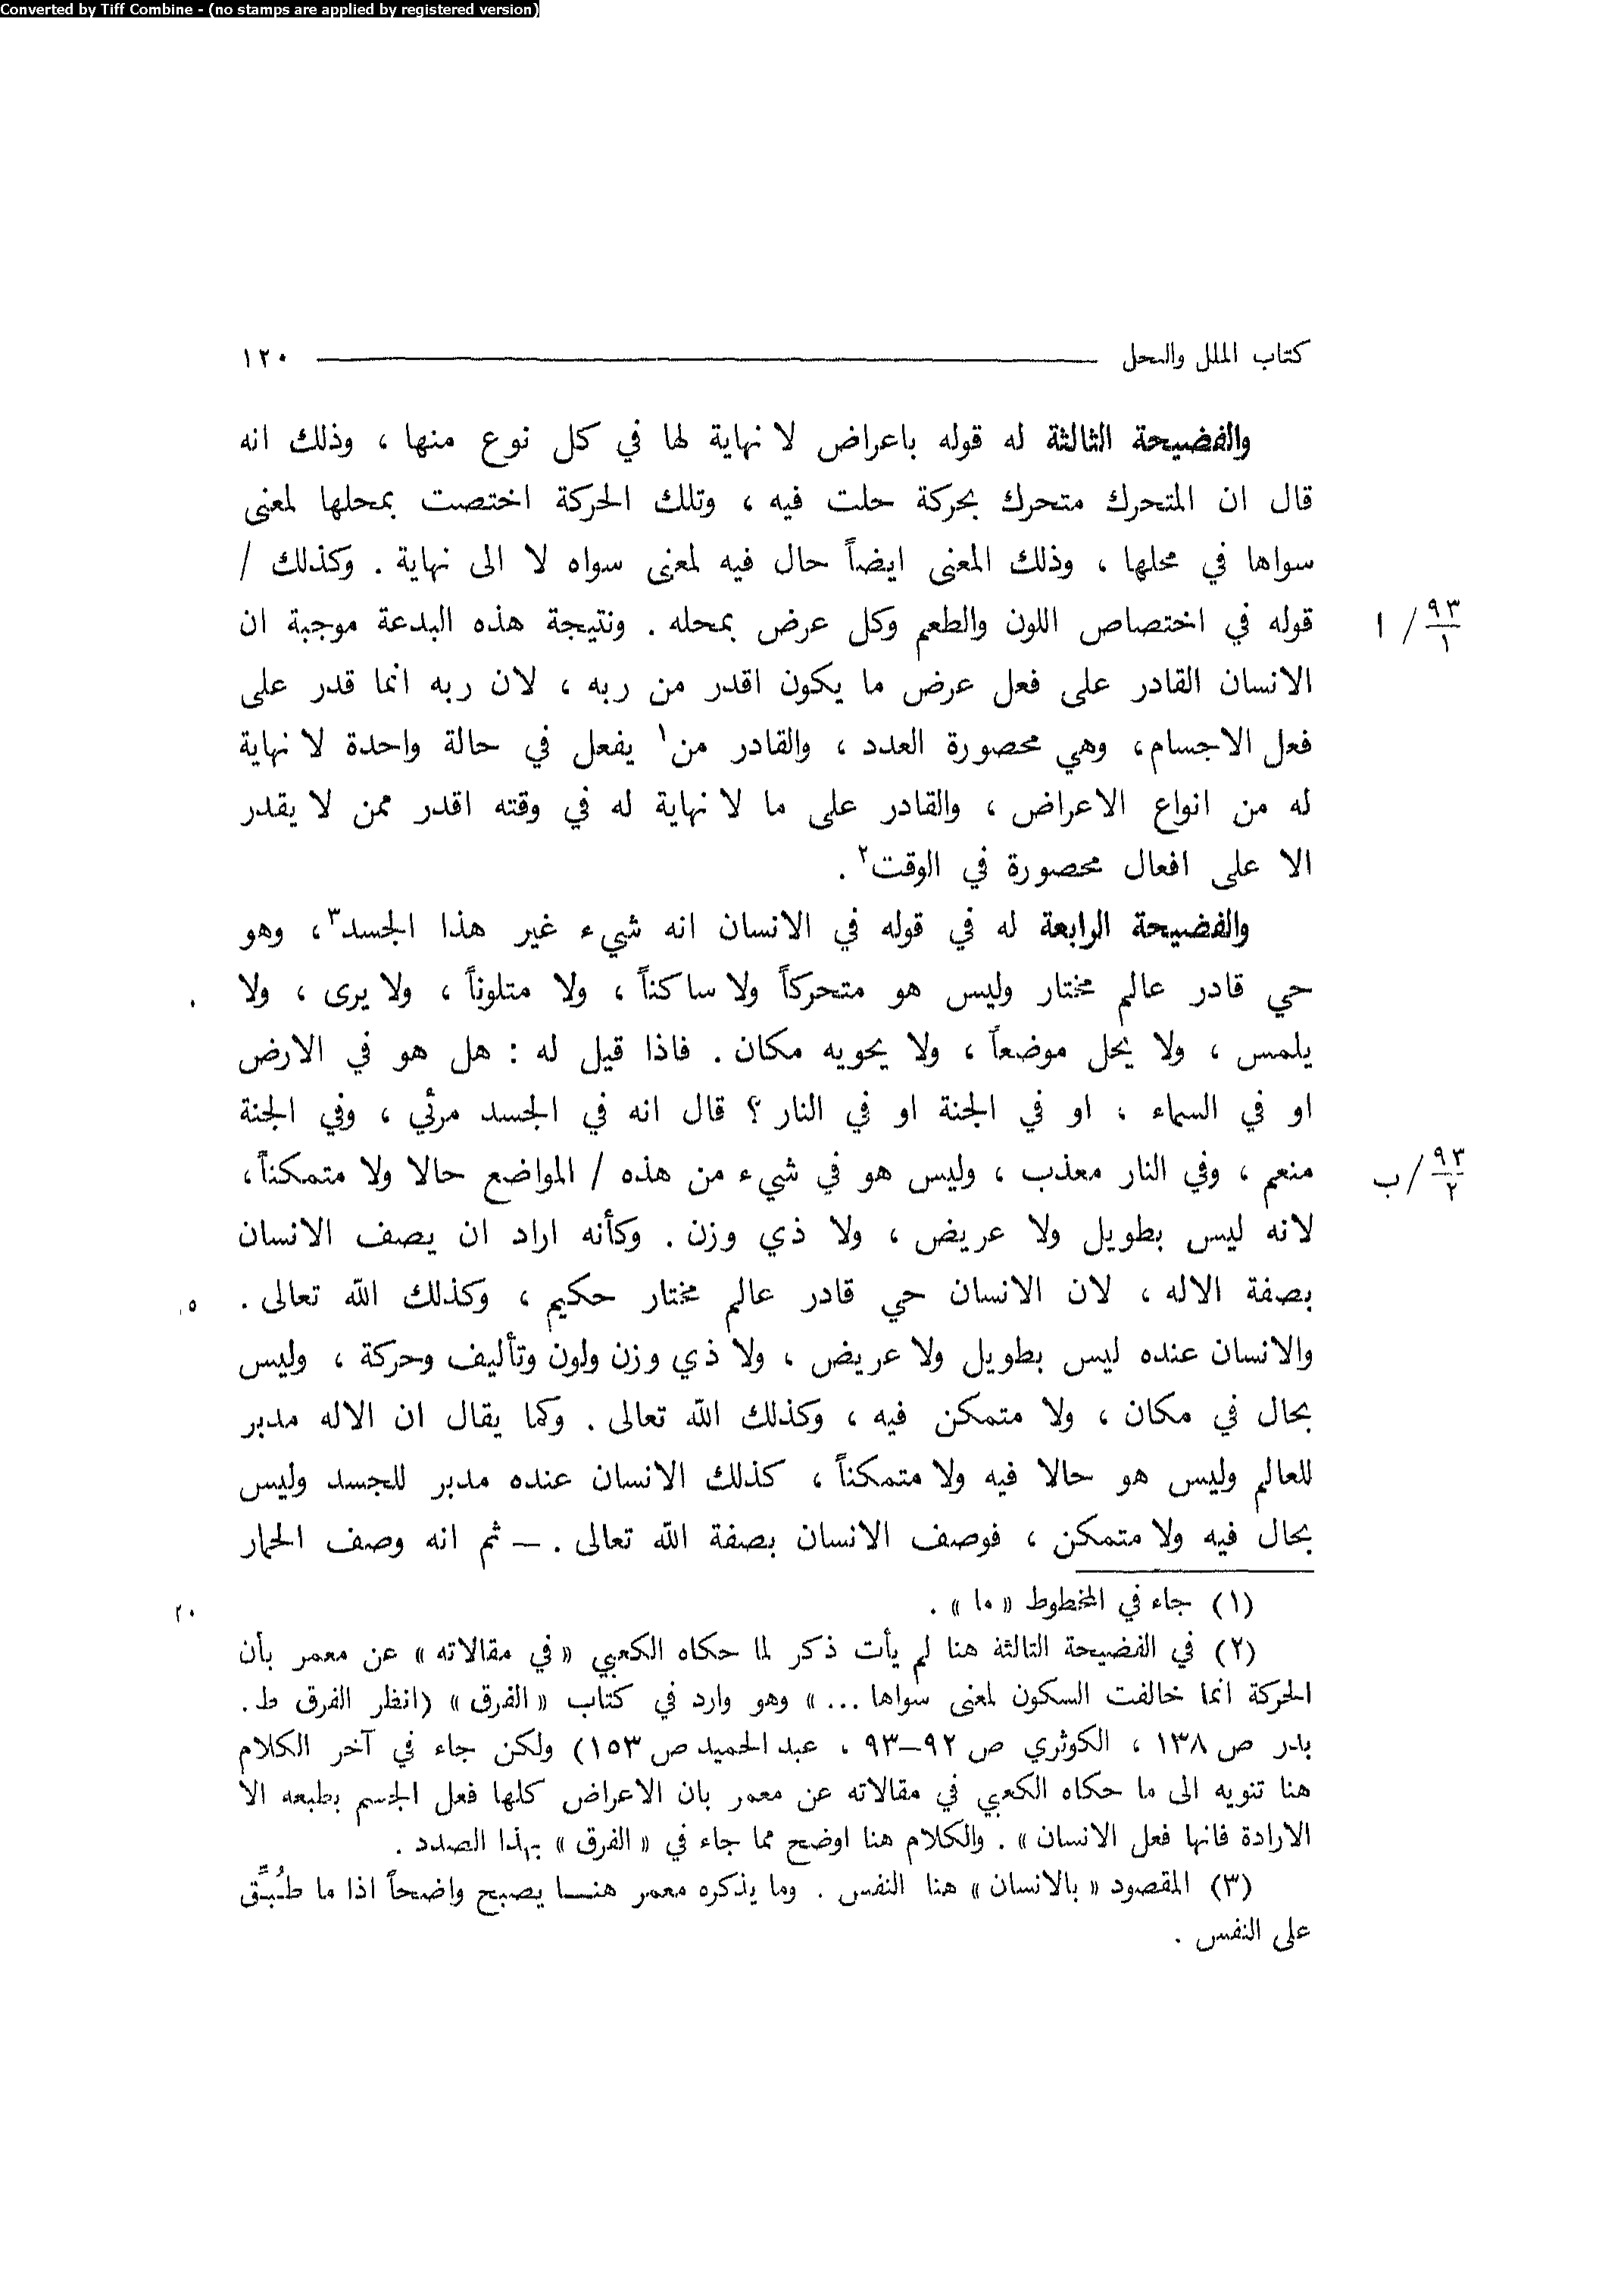 Converted by Tiff Combine - (no stamps are applied by registered version)
كتاب الملل والنحل ١٢٠
والفضيحة الثالثة له قوله باعراض لا نهاية لها في كل نوع منها ، وذلك انه
قال ان المتحرك متحرك بحركة حلت فيه ، وتلك الحركة اختصت بمحلها لمعنى
سواها في محلها ، وذلك المعنى ايضاً حال فيه لمعنى سواه لا الى نهاية . وكذلك /
قوله في اختصاص اللون والطعم وكل عرض بمحله . ونتيجة هذه البدعة موجبة ان
٩٣/١ / ا
الانسان القادر على فعل عرض ما يكون اقدر من ربه ، لان ربه انما قدر على
فعل الاجسام، وهي محصورة العدد ، والقادر من١ يفعل في حالة واحدة لا نهاية
له من انواع الاعراض ، والقادر على ما لا نهاية له في وقته اقدر ممن لا يقدر
الا على افعال محصورة في الوقت٢ .
والفضيحة الرابعة له في قوله في الانسان انه شيء غير هذا الجسد٣، وهو
حي قادر عالم مختار وليس هو متحركاً ولا ساكناً ، ولا متلوناً ، ولا يرى ، ولا
يلمس ، ولا يحل موضعاً ، ولا يحويه مكان . فاذا قيل له : هل هو في الارض
او في السماء ، او في الجنة او في النار ؟ قال انه في الجسد مرئي ، وفي الجنة
منعم ، وفي النار معذب ، وليس هو في شيء من هذه / المواضع حالا ولا متمكناً،
٩٣/٢ / ب
لانه ليس بطويل ولا عريض ، ولا ذي وزن . وكأنه اراد ان يصف الانسان
بصفة الاله ، لان الانسان حي قادر عالم مختار حكيم ، وكذلك الله تعالى .
٥
والانسان عنده ليس بطويل ولا عريض ، ولا ذي وزن ولون وتأليف وحركة ، وليس
بحال في مكان ، ولا متمكن فيه ، وكذلك الله تعالى . وكما يقال ان الاله مدبر
للعالم وليس هو حالا فيه ولا متمكناً ، كذلك الانسان عنده مدبر للجسد وليس
بحال فيه ولا متمكن ، فوصف الانسان بصفة الله تعالى . — ثم انه وصف الحمار
(١) جاء في المخطوط « ما » .
٢٠
(٢) في الفضيحة الثالثة هنا لم يأت ذكر لما حكاه الكعبي « في مقالاته » عن معمر بأن
الحركة انما خالفت السكون لمعنى سواها ... » وهو وارد في كتاب « الفرق » (انظر الفرق ط.
بدر ص ١٣٨ ، الكوثري ص ٩٢–٩٣ ، عبد الحميد ص ١٥٣) ولكن جاء في آخر الكلام
هنا تنويه الى ما حكاه الكعبي في مقالاته عن معمر بان الاعراض كلها فعل الجسم بطبعه الا
الارادة فانها فعل الانسان » . والكلام هنا اوضح مما جاء في « الفرق » بهذا الصدد .
(٣) المقصود « بالانسان » هنا النفس . وما يذكره معمر هنا يصبح واضحاً اذا ما طُبِّق
على النفس .